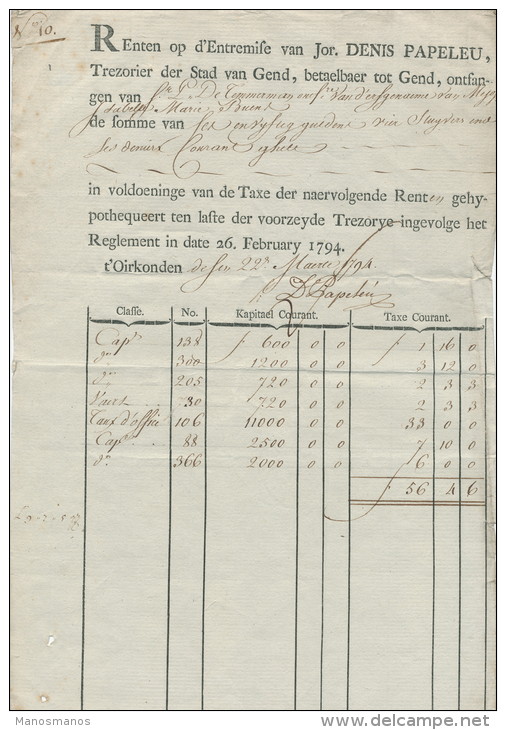 No. 10.
REnten op d'Entremise van Jor. DENIS PAPELEU,
Trezorier der Stad van Gend, betaelbaer tot Gend, ontfan-
gen van De Timmerman Van
Marie
de somme van ses en vyftig guldens vier Stuyvers ende
ses deniers Courant ghelt
in voldoeninge van de Taxe der naervolgende Renten gehy-
pothequeert ten laste der voorzeyde Trezorye ingevolge het
Reglement in date 26. February 1794.
t'Oirkonden desen 22 Maerte 1794.
D Papeleu
Classe. No. Kapitael Courant. Taxe Courant.
Cap 138 f 600 0 0 f 1 16 0
do 300 1200 0 0 3 12 0
do 205 720 0 0 2 3 3
Vaert 730 720 0 0 2 3 3
Taux d'office 106 11000 0 0 33 0 0
Cap 88 2500 0 0 7 10 0
do 366 2000 0 0 6 0 0
f 56 4 6
Manosmanos
delcampe.net